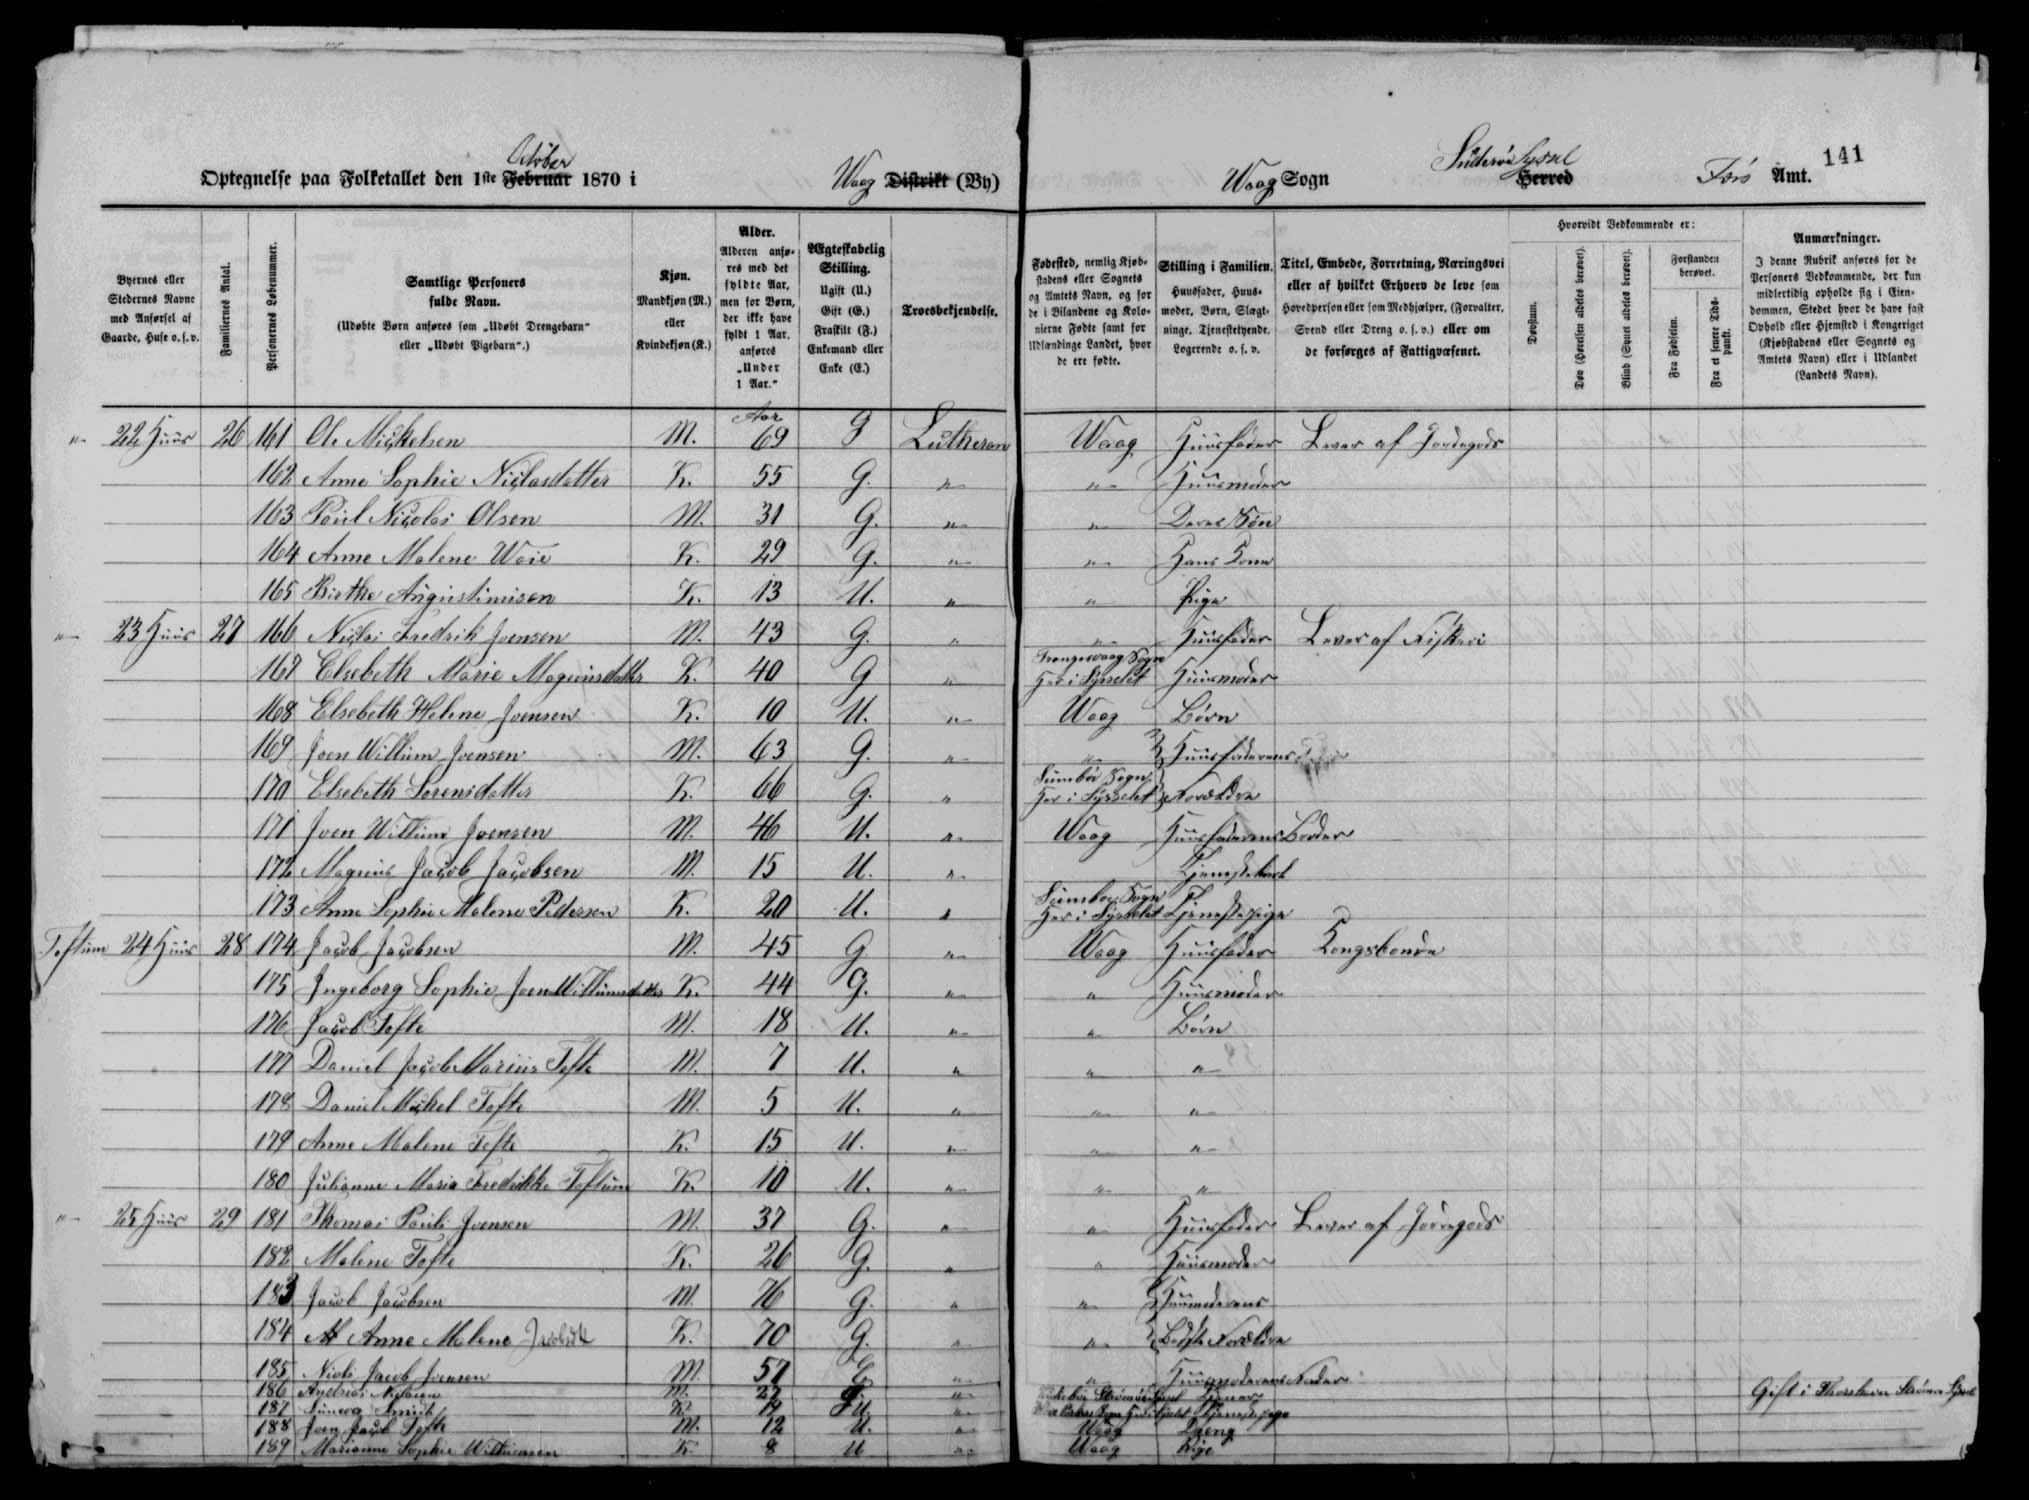 October
Optegnelse paa Folketallet den 1ste Februar 1870 i Waag Distrikt (By) Waag Sogn Suderø Syssel Herred Förö Amt. 141
Byernes eller Stedernes Navne med Anførsel af Gaarde, Huse o. s. v.
Familiernes Antal.
Personernes Løbenummer.
Samtlige Personers fulde Navn.
(Udøbte Børn anføres som „Udøbt Drengebarn“ eller „Udøbt Pigebarn“.)
Kjøn. Mandkjøn (M.) eller Kvindekjøn (K.)
Alder. Alderen anføres med det fyldte Aar, men for Børn, der ikke have fyldt 1 Aar, anføres „Under 1 Aar.“
Ægteskabelig Stilling. Ugift (U.) Gift (G.) Fraskilt (F.) Enkemand eller Enke (E.)
Troesbekjendelse.
Fødested, nemlig Kjøbstadens eller Sognets og Amtets Navn, og for de i Bilandene og Kolonierne Fødte samt for Udlændinge Landet, hvor de ere fødte.
Stilling i Familien. Huusfader, Huusmoder, Børn, Slægtninge, Tjenestetyende, Logerende o. s. v.
Titel, Embede, Forretning, Næringsvei eller af hvilket Erhverv de leve som Hovedperson eller som Medhjælper, (Forvalter, Svend eller Dreng o. s. v.) eller om de forsørges af Fattigvæsenet.
Hvorvidt Vedkommende er:
Døvstum.
Døv (Hørelsen aldeles berøvet).
Blind (Synet aldeles berøvet).
Forstanden berøvet.
Fra Fødselen.
Fra et senere Tidspunkt.
Anmærkninger. I denne Rubrik anføres for de Personers Vedkommende, der kun midlertidig opholde sig i Eiendommen, Stedet hvor de have fast Ophold eller Hjemsted i Kongeriget (Kjøbstadens eller Sognets og Amtets Navn) eller i Udlandet (Landets Navn).
Aar
"- 22 Huus 26 161 Ole Mickelsen M. 69 G Lutheran Waag Huusfader Lever af Jordegods
162 Anne Sophie Niclasdatter K. 55 G. "- "- Huusmoder
163 Poul Nicolai Olsen M. 31 G. "- "- Deres Søn
164 Anne Malene Waie K. 29 G. "- "- Hans Kone
165 Birthe Augustinusen K. 13 U. " " Pige
"- 23 Huus 27 166 Niclai Fredrik Joensen M. 43 G. " "- Huusfader Lever af Fiskeri
167 Elsebeth Marie Magnusdatter K. 40 G " Trangisvaag Sogn Her i Sysselet Huusmoder
168 Elsebeth Helene Joensen K. 10 U. "- Waag Børn
169 Joen Willum Joensen M. 63 G. "- "- Huusfaderens
170 Elsebeth Sørensdatter K. 66 G. " Sumbø Sogn Her i Sysselet Forældre
171 Joen Willum Joensen M. 46 U. "- Waag Huusfaderens Broder
172 Magnus Jacob Jacobsen M. 15 U. "- Tjenestekarl
173 Anne Sophie Malene Pedersen K. 20 U. " Sumbøe Sogn Her i Sysselet Tjenestepige
Toftum 24 Huus 28 174 Jacob Jacobsen M. 45 G "- Waag Huusfader Kongsbonde
175 Ingeborg Sophie Joen Willumsdatter K. 44 G. "- " Huusmoder
176 Jacob Tofte M. 18 U. "- " Børn
177 Daniel Jacob Marius Tofte M. 7 U. " " "
178 Daniel Mickel Tofte M. 5 U. " "- "-
179 Anne Malene Tofte K. 15 U. "- "- "-
180 Julianne Maria Fredrikke Toftum K. 10 U. "- "- "-
"- 25 Huus 29 181 Thomas Pauli Joensen M. 37 G. " " Huusfader Lever af Jordegods
182 Malene Tofte K. 26 G. " " Huusmoder
183 Jacob Jacobsen M. 76 G. " "- Huusmoderens
184 Anne Malene Jacobsdt K. 70 G. "- "- Forældre
185 Niclas Jacob Joensen M. 57 E "- "
186 Andreas M. 27 "- Gift i Thorshavn Strømø Syssel
187 K. 19 U. "- Tjenestepige
188 Joen Jacob Tofte M. 12 U. " Waag Dreng
189 Marianne Sophie Willumsen K. 8 U "- Waag Pige